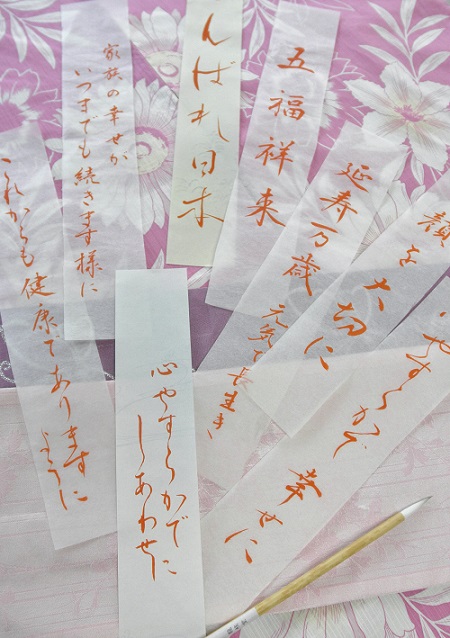 顔を大切に
やすらかで
幸せに
延寿万歳
元気で長生き
五福祥来
んばれ日本
家族の幸せが
いつまでも続きます様に
心やすらかで
しあわせに
これからも健康であります
ように